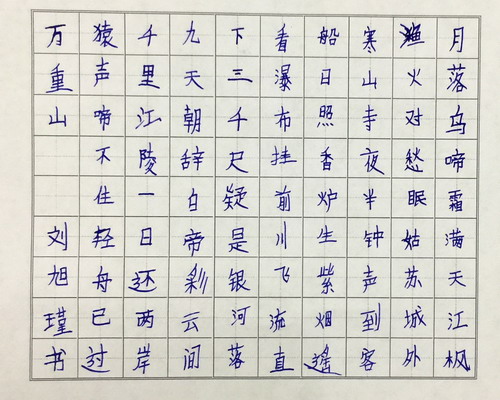 月落乌啼霜满天江枫
渔火对愁眠姑苏城外
寒山寺夜半钟声到客
船日照香炉生紫烟遥
看瀑布挂前川飞流直
下三千尺疑是银河落
九天朝辞白帝彩云间
千里江陵一日还两岸
猿声啼不住轻舟已过
万重山 刘旭瑾书